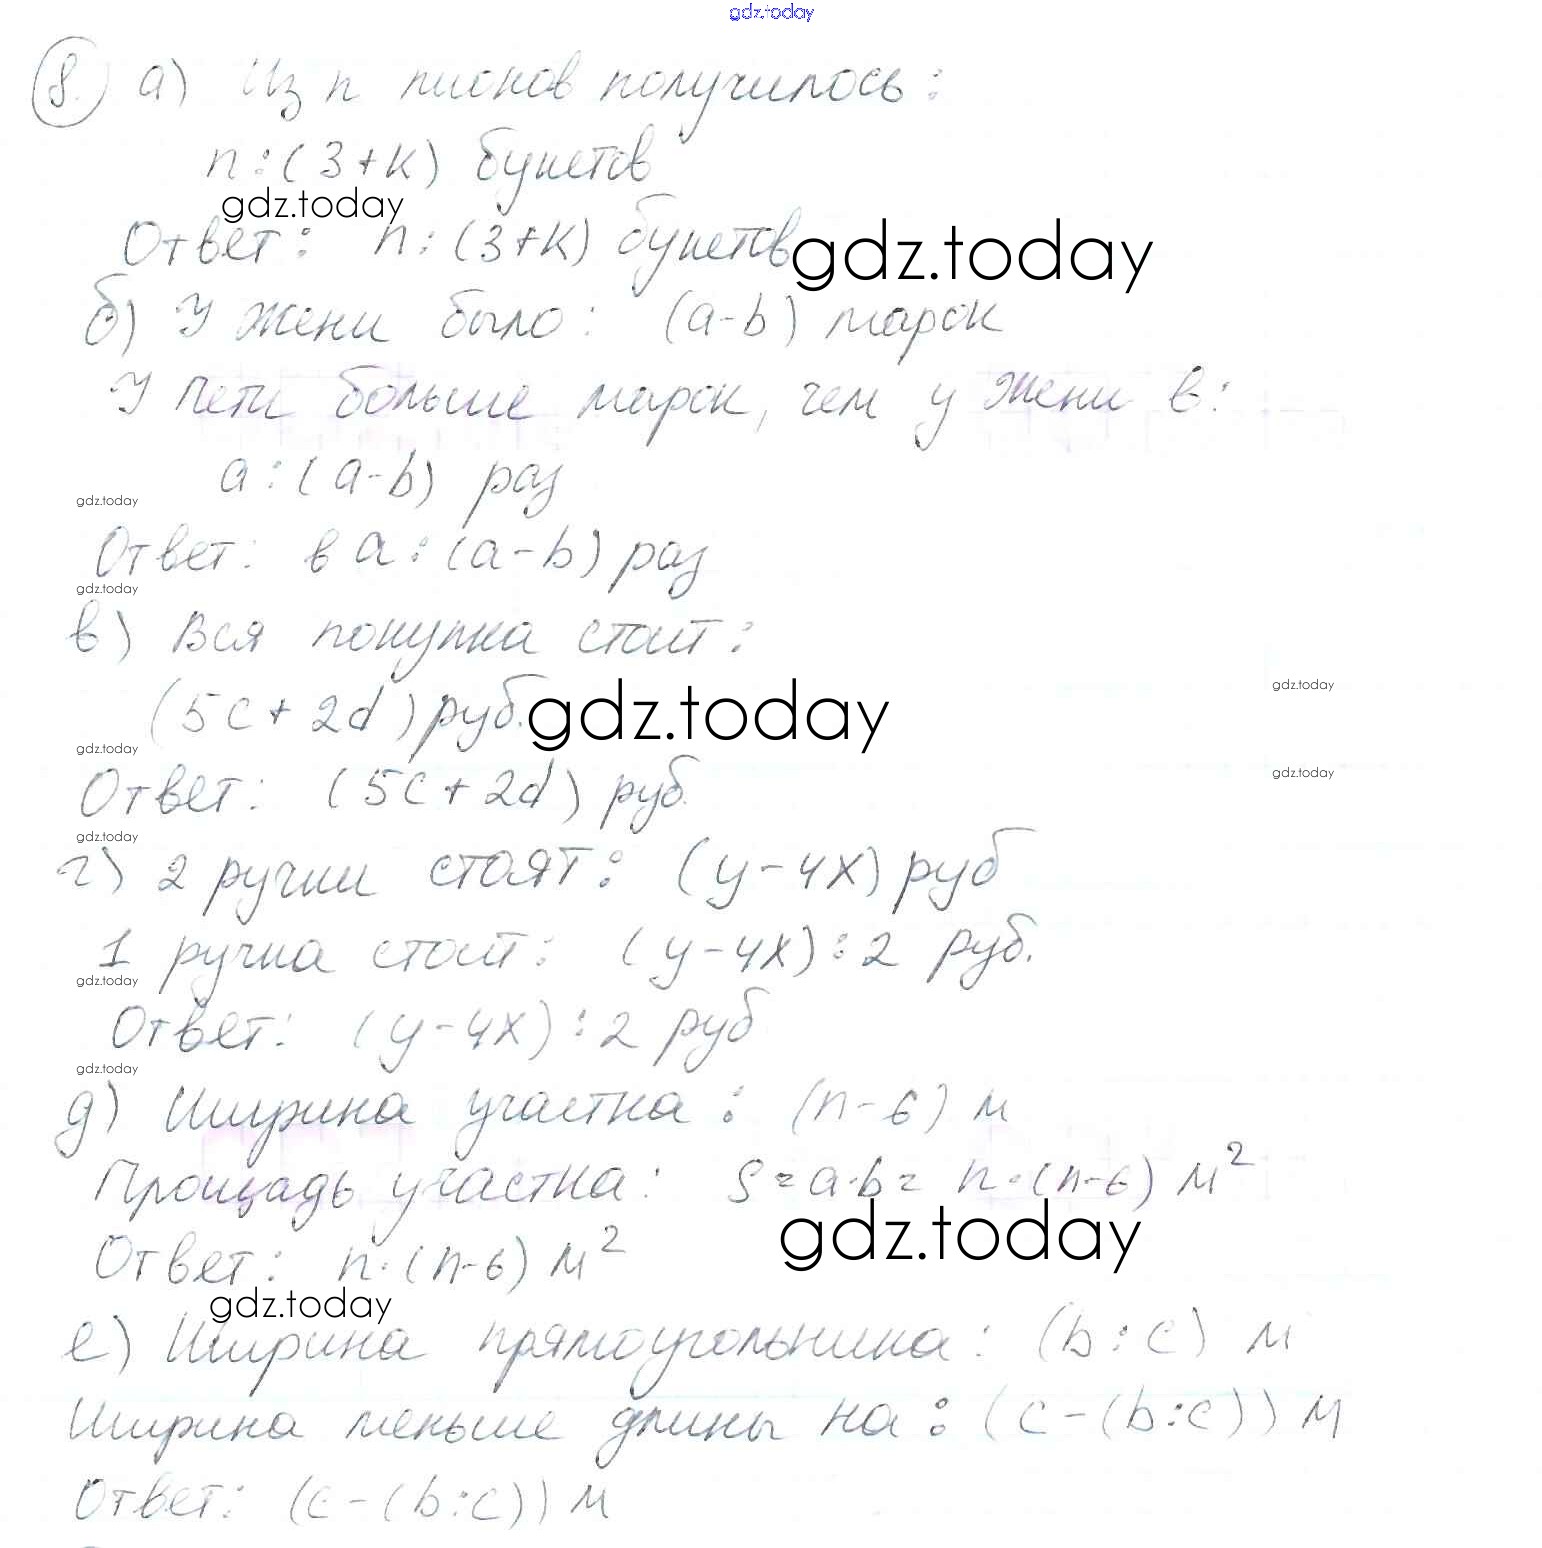 gdz.today
8. а) Из n пионов получилось:
n:(3+к) букетов
gdz.today
Ответ: n:(3+к) букетов
gdz.today
б) У Жени было: (a-b) марок
У Пети больше марок, чем у Жени в:
a:(a-b) раз
gdz.today
Ответ: в a:(a-b) раз
gdz.today
в) Вся покупка стоит:
(5c+2d) руб.
gdz.today
gdz.today
gdz.today
Ответ: (5c+2d) руб.
gdz.today
gdz.today
г) 2 ручки стоят: (y-4x) руб
1 ручка стоит: (y-4x):2 руб.
gdz.today
Ответ: (y-4x):2 руб
gdz.today
д) Ширина участка: (n-6) м
Площадь участка: S=a·b= n·(n-6) м²
gdz.today
Ответ: n·(n-6) м²
gdz.today
е) Ширина прямоугольника: (b:c) м
Ширина меньше длины на: (c-(b:c)) м
Ответ: (c-(b:c)) м